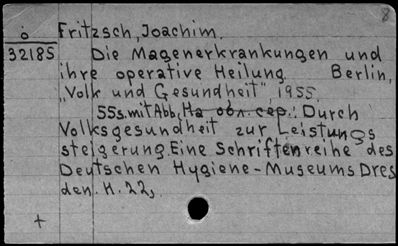 8
ö Fritzsch, Joachim.
32185 Die Magenerkrankungen und
ihre operative Heilung Berlin,
„Volk und Gesundheit", 1955.
55s. mit Abb, На обл. сер.: Durch
Volksgesundheit zur Leistungs
steigerung. Eine Schriftenreihe des
Deutschen Hygiene-Museums Dres
den. H. 22,
+